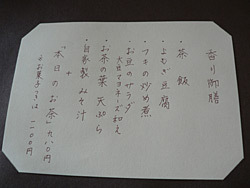 香り御膳
・茶飯
・よもぎ豆腐
・フキの炒め煮
・お豆のサラダ
大豆マヨネーズ和え
・お茶の葉天ぷら
・自家製みそ汁
+
「本日のお茶」九八〇円
※お菓子つきは 一二〇〇円